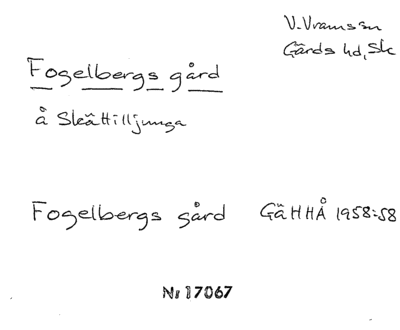 V. Vramssn
Gärds hd, Sk
Fogelbergs gård
å Skättilljunga
Fogelbergs gård GäHHÅ 1958:58
Nr 17067